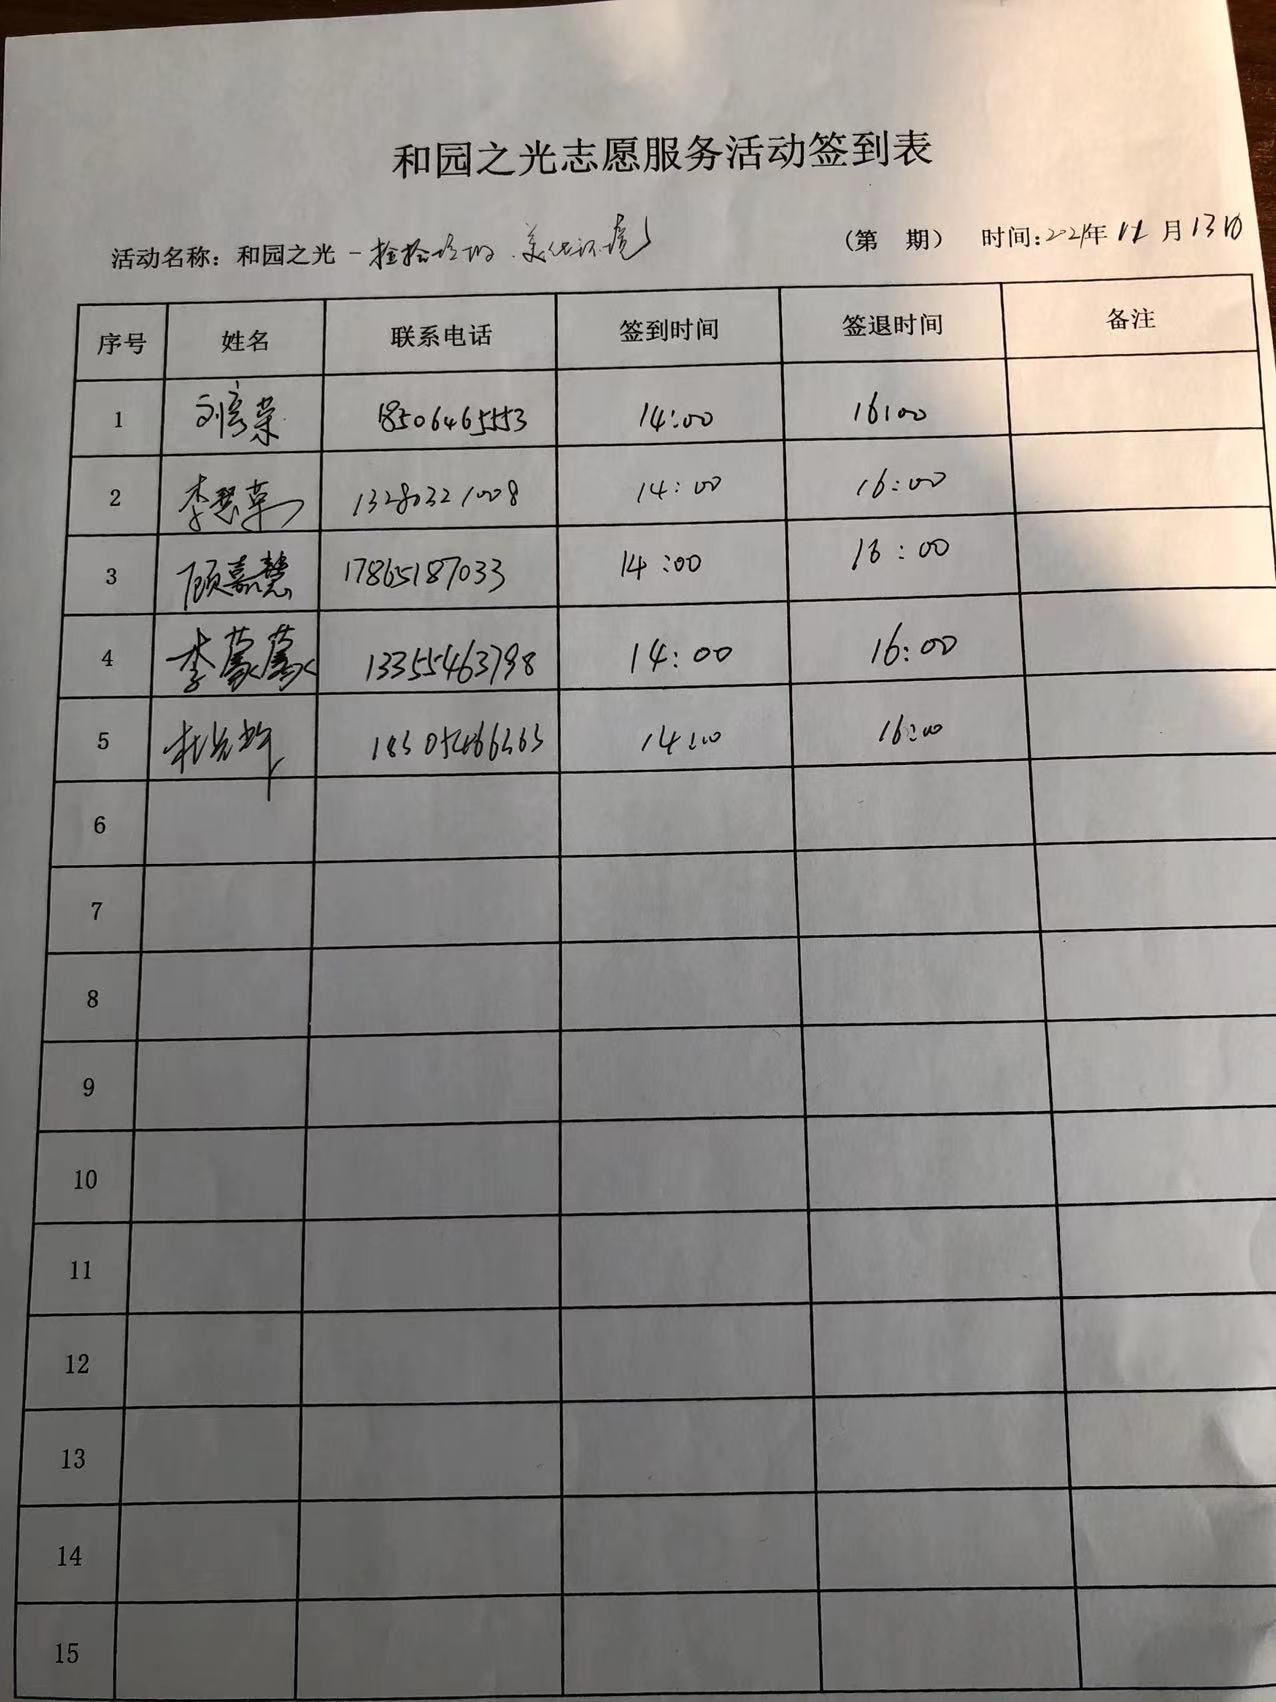 和园之光志愿服务活动签到表
活动名称：和园之光－捡拾垃圾 美化环境 （第 期） 时间:2021年11月13日
序号 姓名 联系电话 签到时间 签退时间 备注
1 刘秀荣 18506465553 14:00 16:00
2 李慧 13280321008 14:00 16:00
3 顾嘉慧 17865187033 14:00 16:00
4 李蒙蒙 13355463798 14:00 16:00
5 14:00 16:00
6
7
8
9
10
11
12
13
14
15